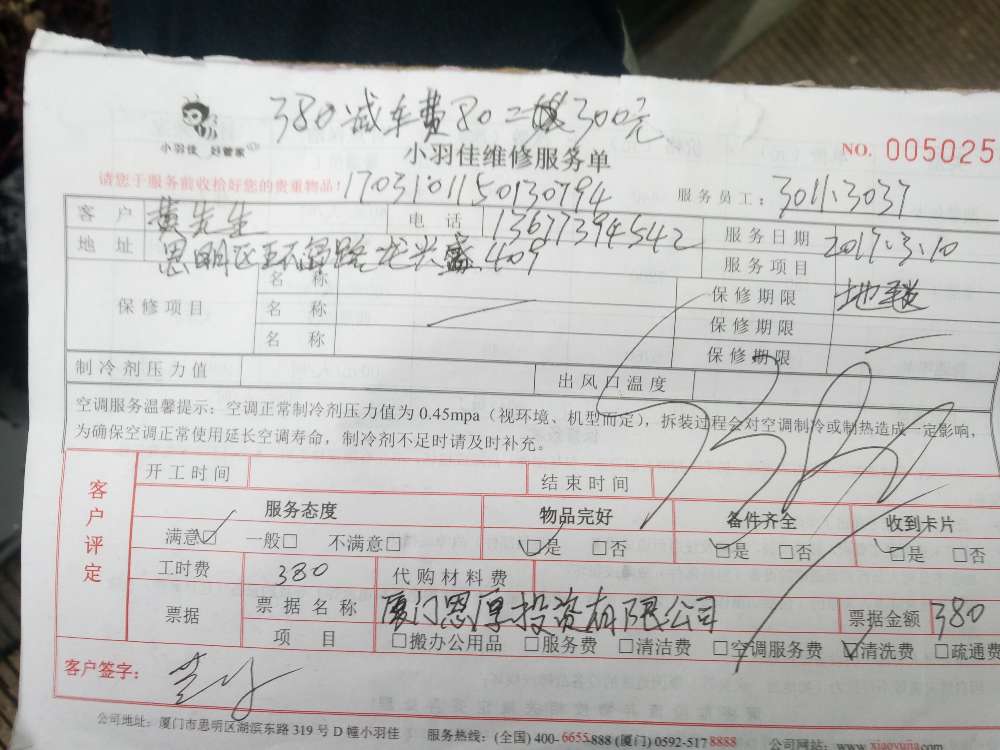 380减车费80=300元
小羽佳 好管家
小羽佳维修服务单
NO. 005025
请您于服务前收拾好您的贵重物品!
1703101150130794
服务员工: 3011.3037
客户 黄先生 电话 13677394542 服务日期 2017.3.10
地址 思明区 409 服务项目 地毯
保修项目
名称 保修期限
名称 保修期限
名称 保修期限
制冷剂压力值 出风口温度
空调服务温馨提示: 空调正常制冷剂压力值为 0.45mpa (视环境、机型而定), 拆装过程会对空调制冷或制热造成一定影响,
为确保空调正常使用延长空调寿命, 制冷剂不足时请及时补充。
客户评定
开工时间 结束时间
服务态度 物品完好 备件齐全 收到卡片
满意□ 一般□ 不满意□ □是 □否 □是 □否 □是 □否
工时费 380 代购材料费
票据 票据名称 厦门恩厚投资有限公司 票据金额 380
项目 □搬办公用品 □服务费 □清洁费 □空调服务费 □清洗费 □疏通费
客户签字:
公司地址: 厦门市思明区湖滨东路 319 号 D 幢小羽佳 服务热线: (全国) 400-6655-888 (厦门) 0592-5178888 公司网站: www.xiaoyujia.com